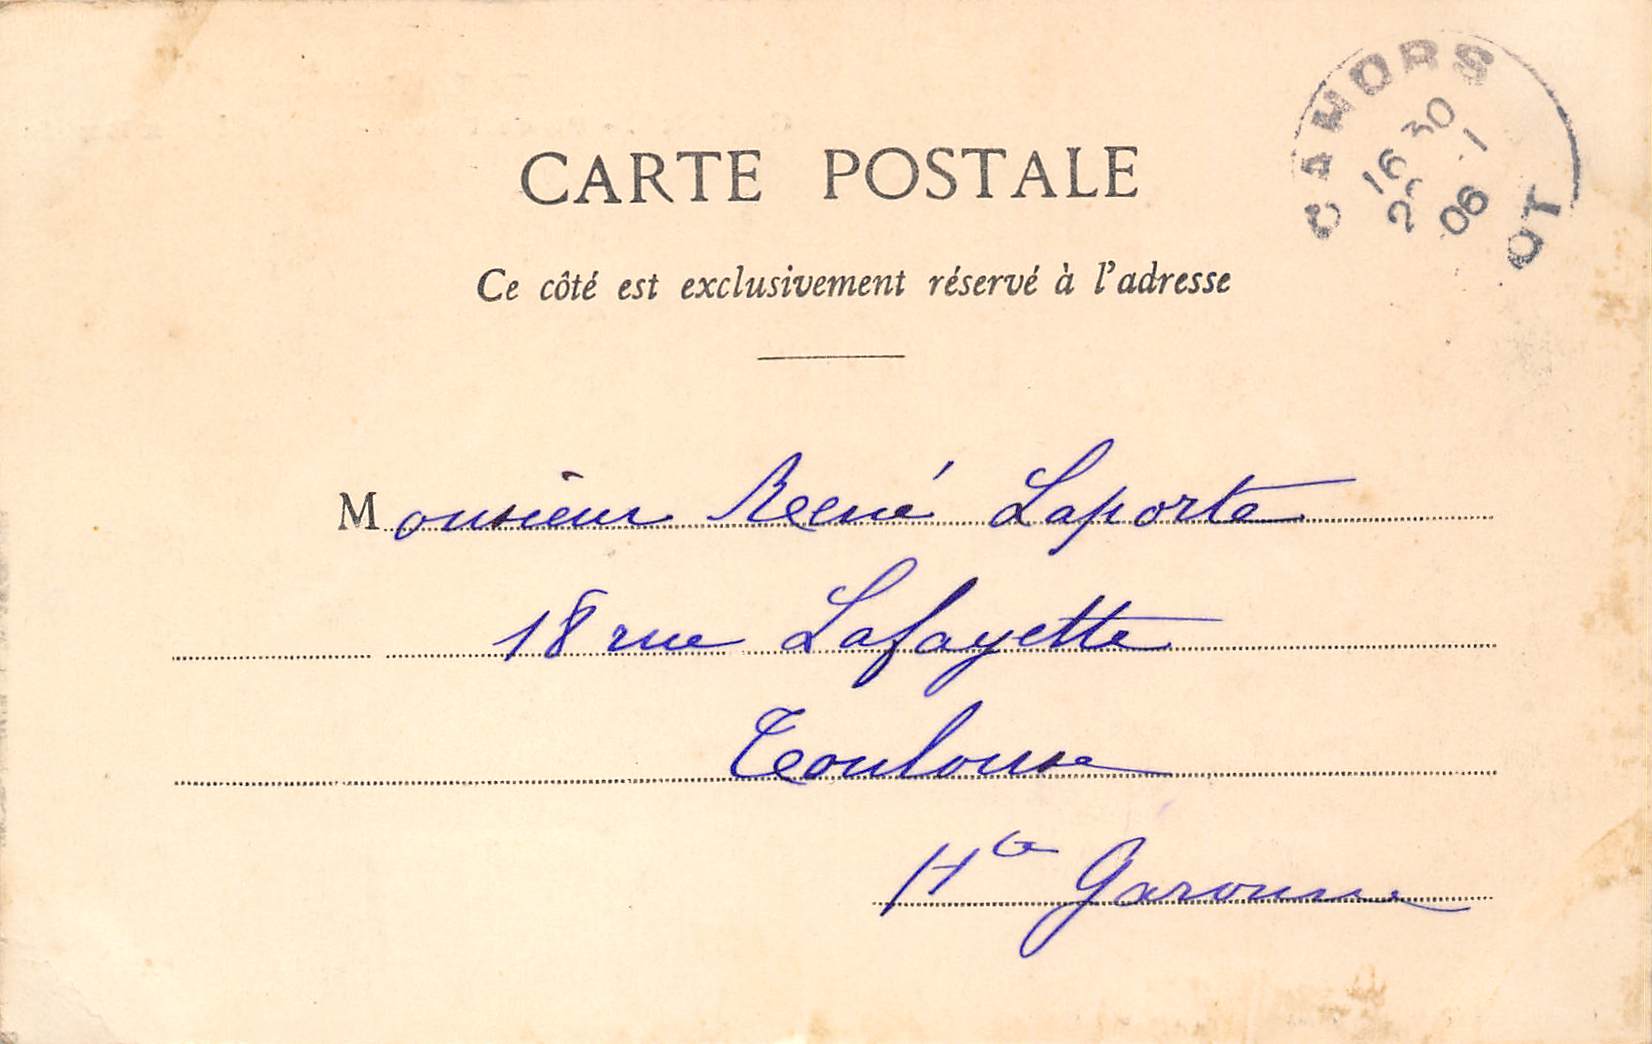 CARTE POSTALE
Ce côté est exclusivement réservé à l'adresse
CAHORS
16 30
-1
06
LOT
Monsieur René Laporte
18 rue Lafayette
Toulouse
Hte Garonne